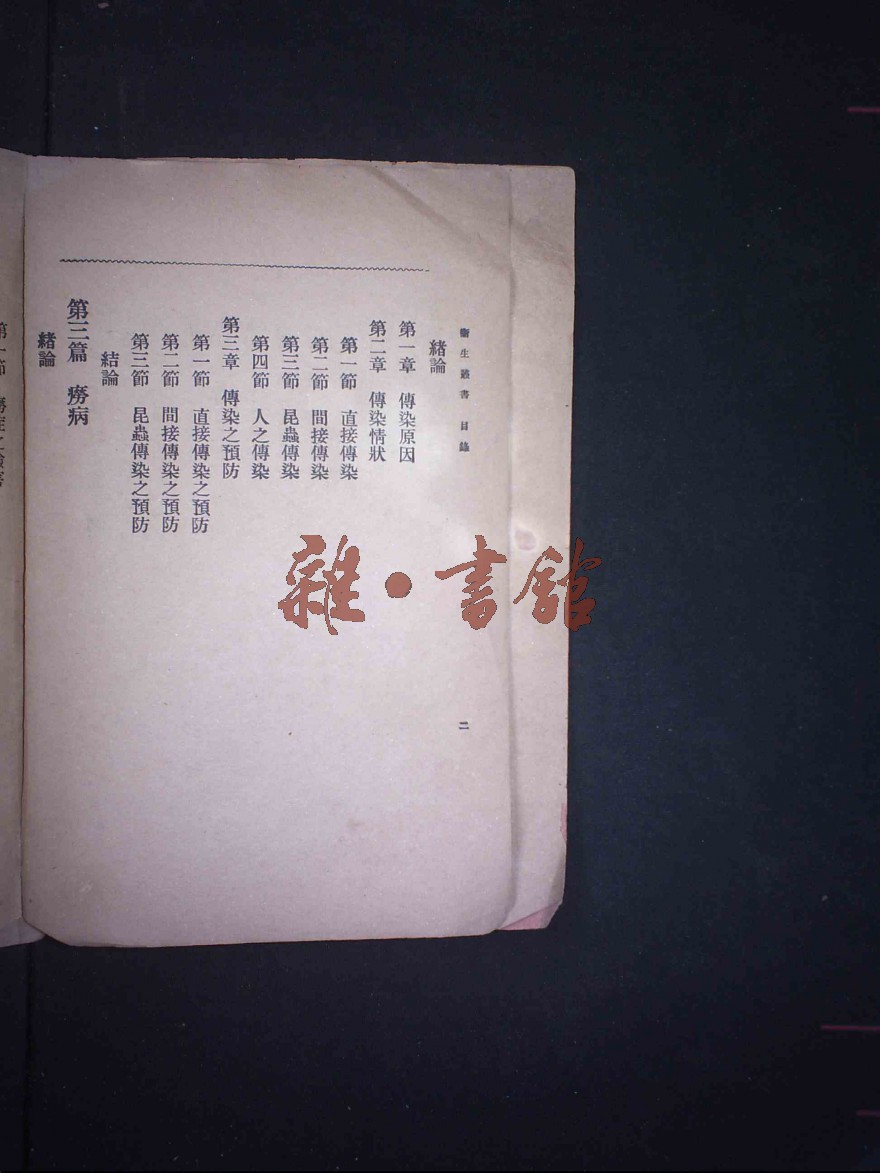 衞生叢書 目錄
二
緒論
第一章 傳染原因
第二章 傳染情狀
第一節 直接傳染
第二節 間接傳染
第三節 昆蟲傳染
第四節 人之傳染
第三章 傳染之預防
第一節 直接傳染之預防
第二節 間接傳染之預防
第三節 昆蟲傳染之預防
結論
第三篇 癆病
緒論
雜·書館